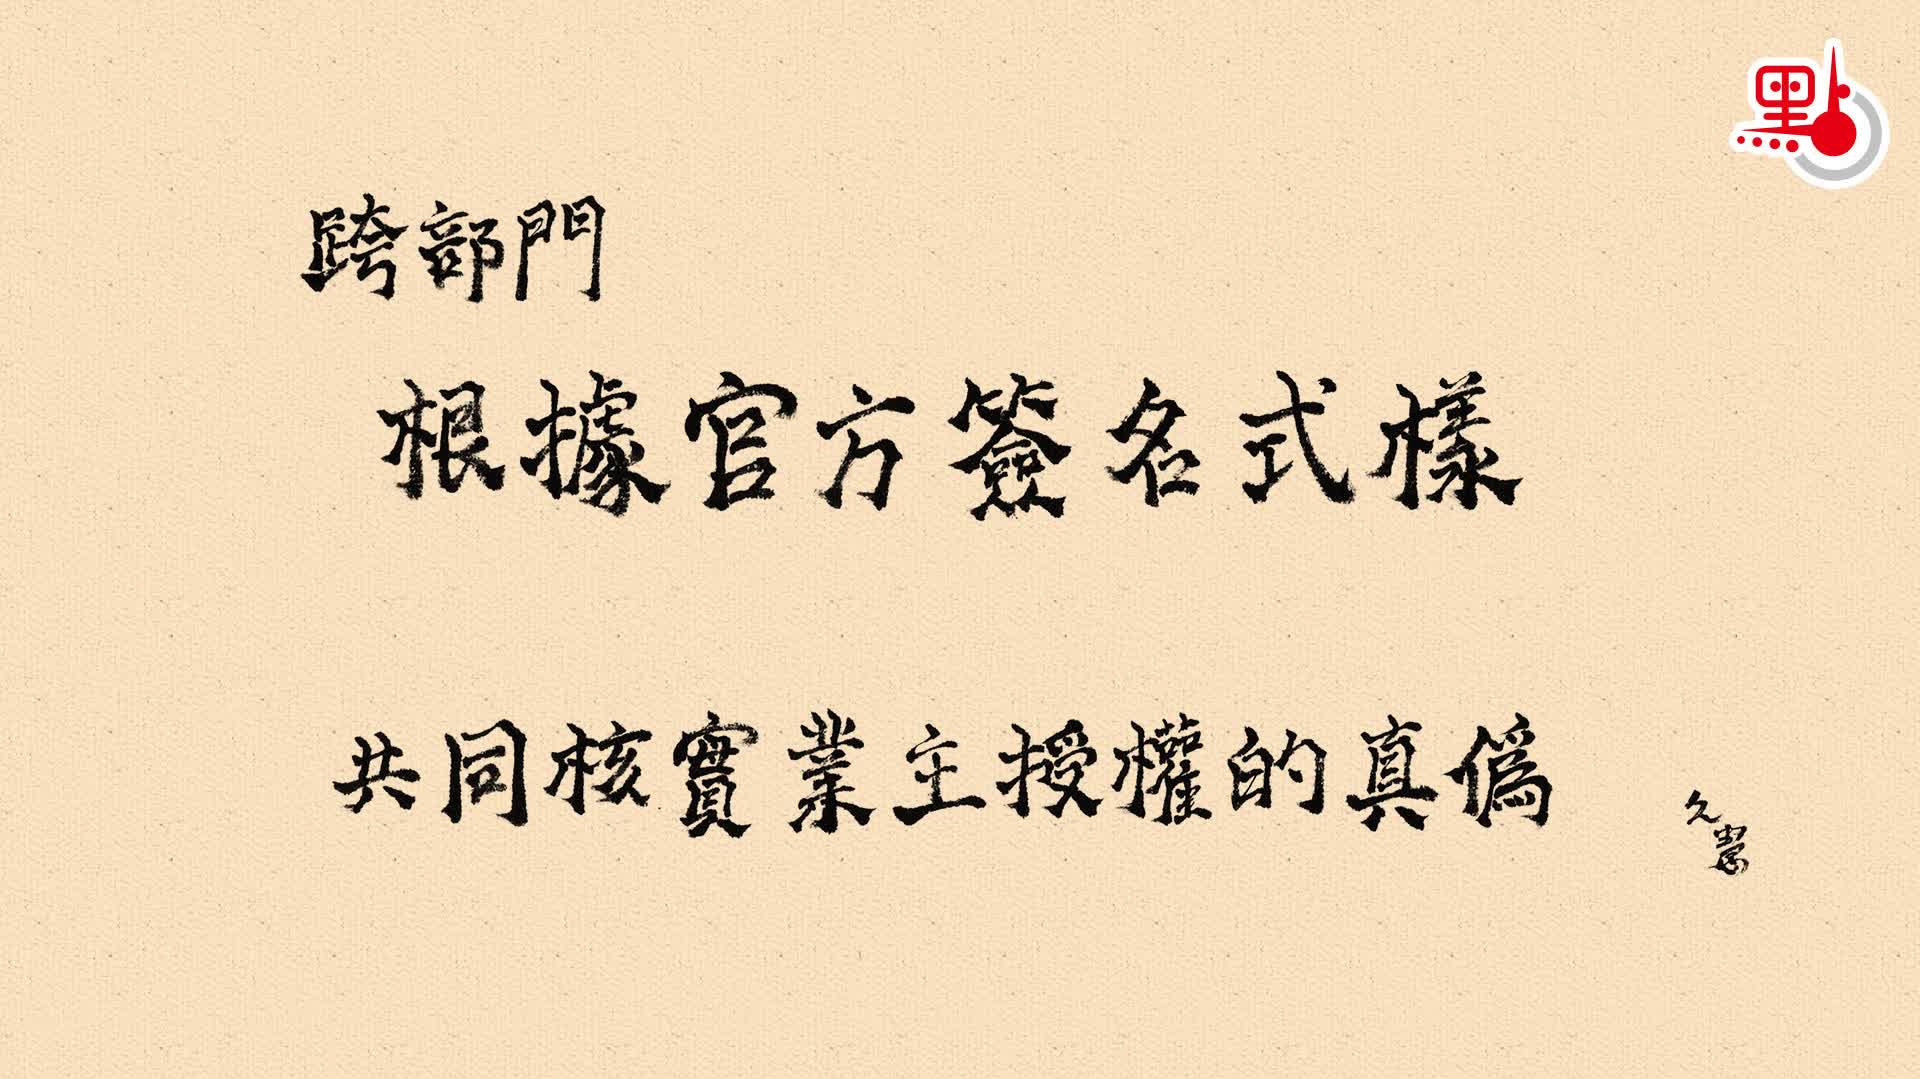 點
跨部門
根據官方簽名式樣
共同核實業主授權的真僞
久